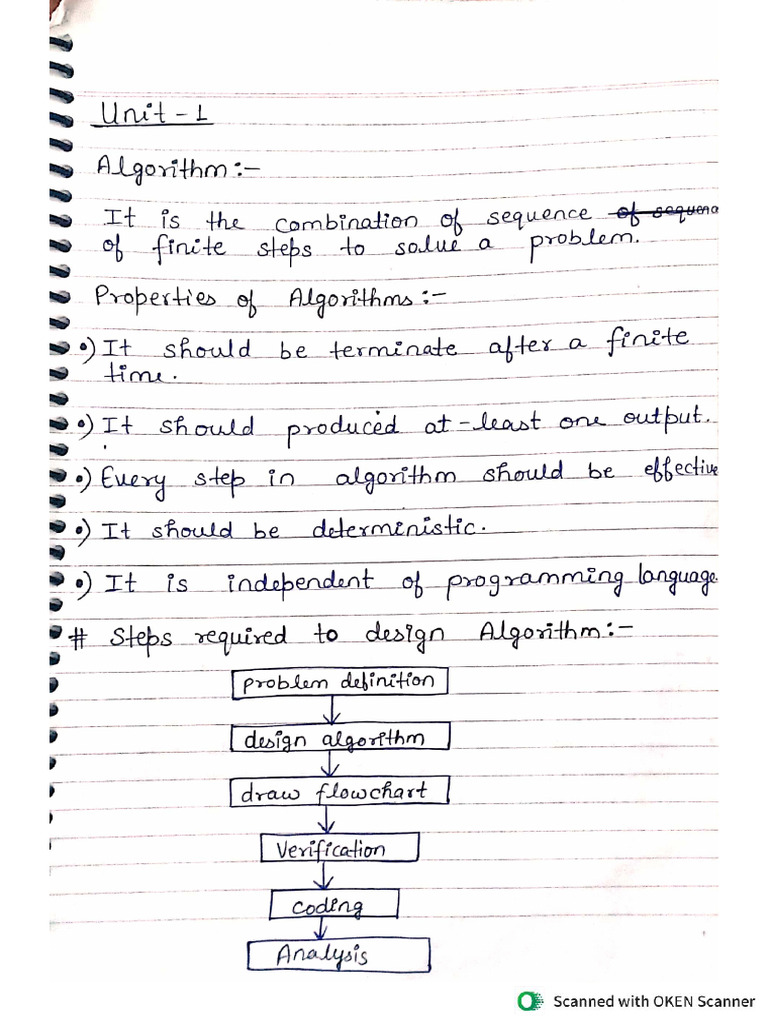 Unit - 1
Algorithm :-
It is the combination of sequence of sequenc
of finite steps to solve a problem.
Properties of Algorithms :-
•) It should be terminate after a finite
time.
•) It should produced at-least one output.
•) Every step in algorithm should be effective
•) It should be deterministic.
•) It is independent of programming language.
# Steps required to design Algorithm :-
problem definition
design algorithm
draw flowchart
Verification
coding
Analysis
Scanned with OKEN Scanner